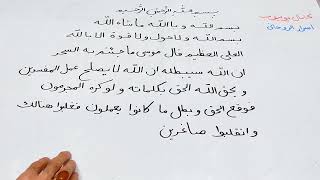 بسم الله الرحمن الرحيم
بسم الله وبالله ماشاء الله
بسم الله ولا حول ولا قوة الا بالله
العلي العظيم قال موسى ما جئتم به السحر
ان الله سيبطله ان الله لا يصلح عمل المفسدين
ويحق الله الحق بكلماته ولو كره المجرمون
فوقع الحق وبطل ما كانوا يعملون فغلبوا هنالك
وانقلبوا صاغرين
اسرار الروحاني